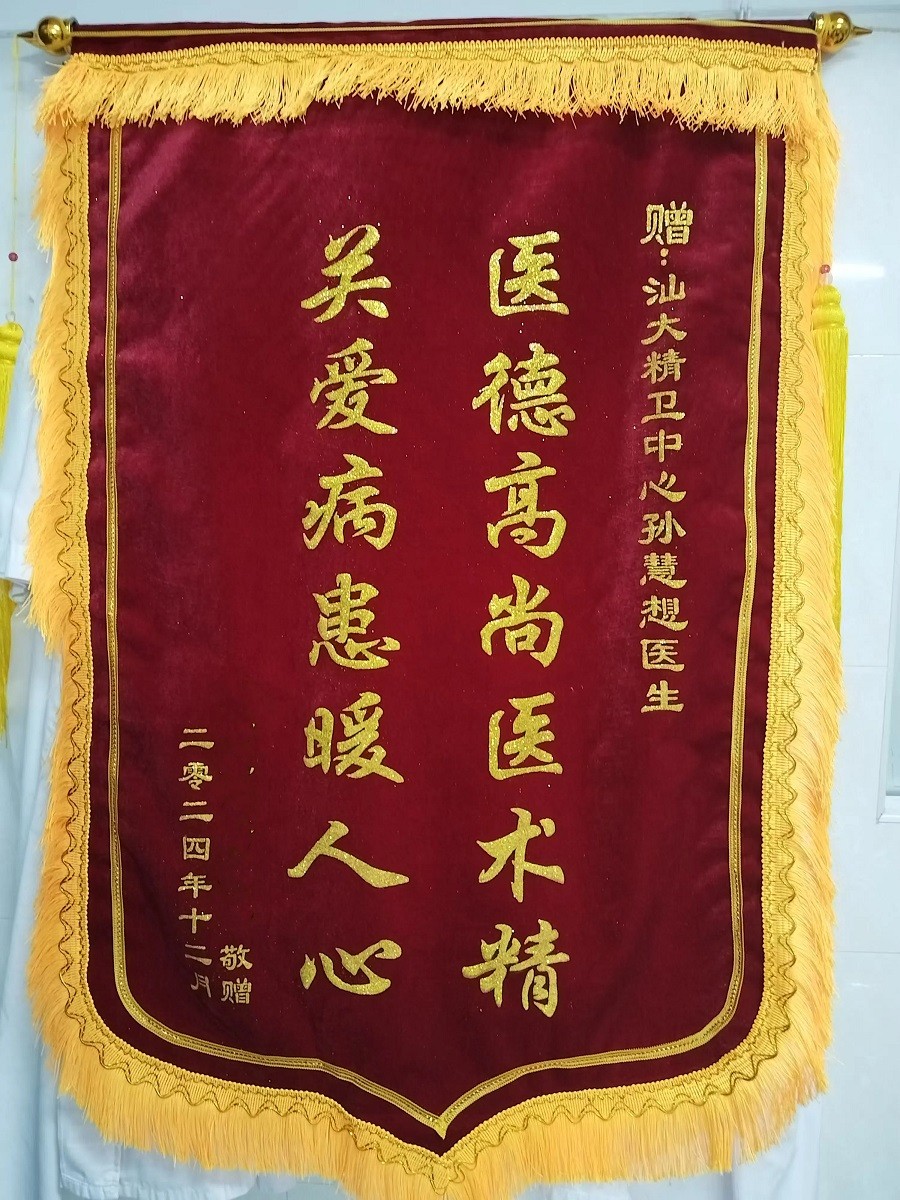 赠：汕大精卫中心孙慧想医生
医德高尚医术精
关爱病患暖人心
敬赠
二零二四年十二月